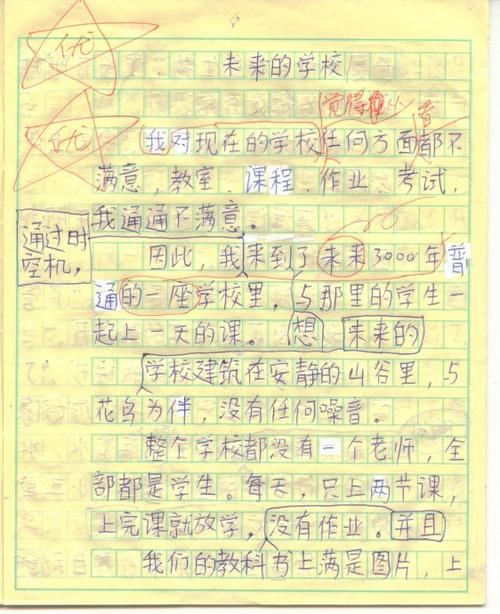 优
未来的学校
觉得
优
我对现在的学校任何方面都不
满意，教室、课程、作业、考试，
我通通不满意。
通过时
空机，
因此，我来到了未来3000年普
通的一座学校里，与那里的学生一
起上一天的课。想 未来的
学校建筑在安静的山谷里，与
花鸟为伴，没有任何噪音。
整个学校都没有一个老师，全
部都是学生。每天，只上两节课，
上完课就放学，没有作业。并且
我们的教科书上满是图片，上